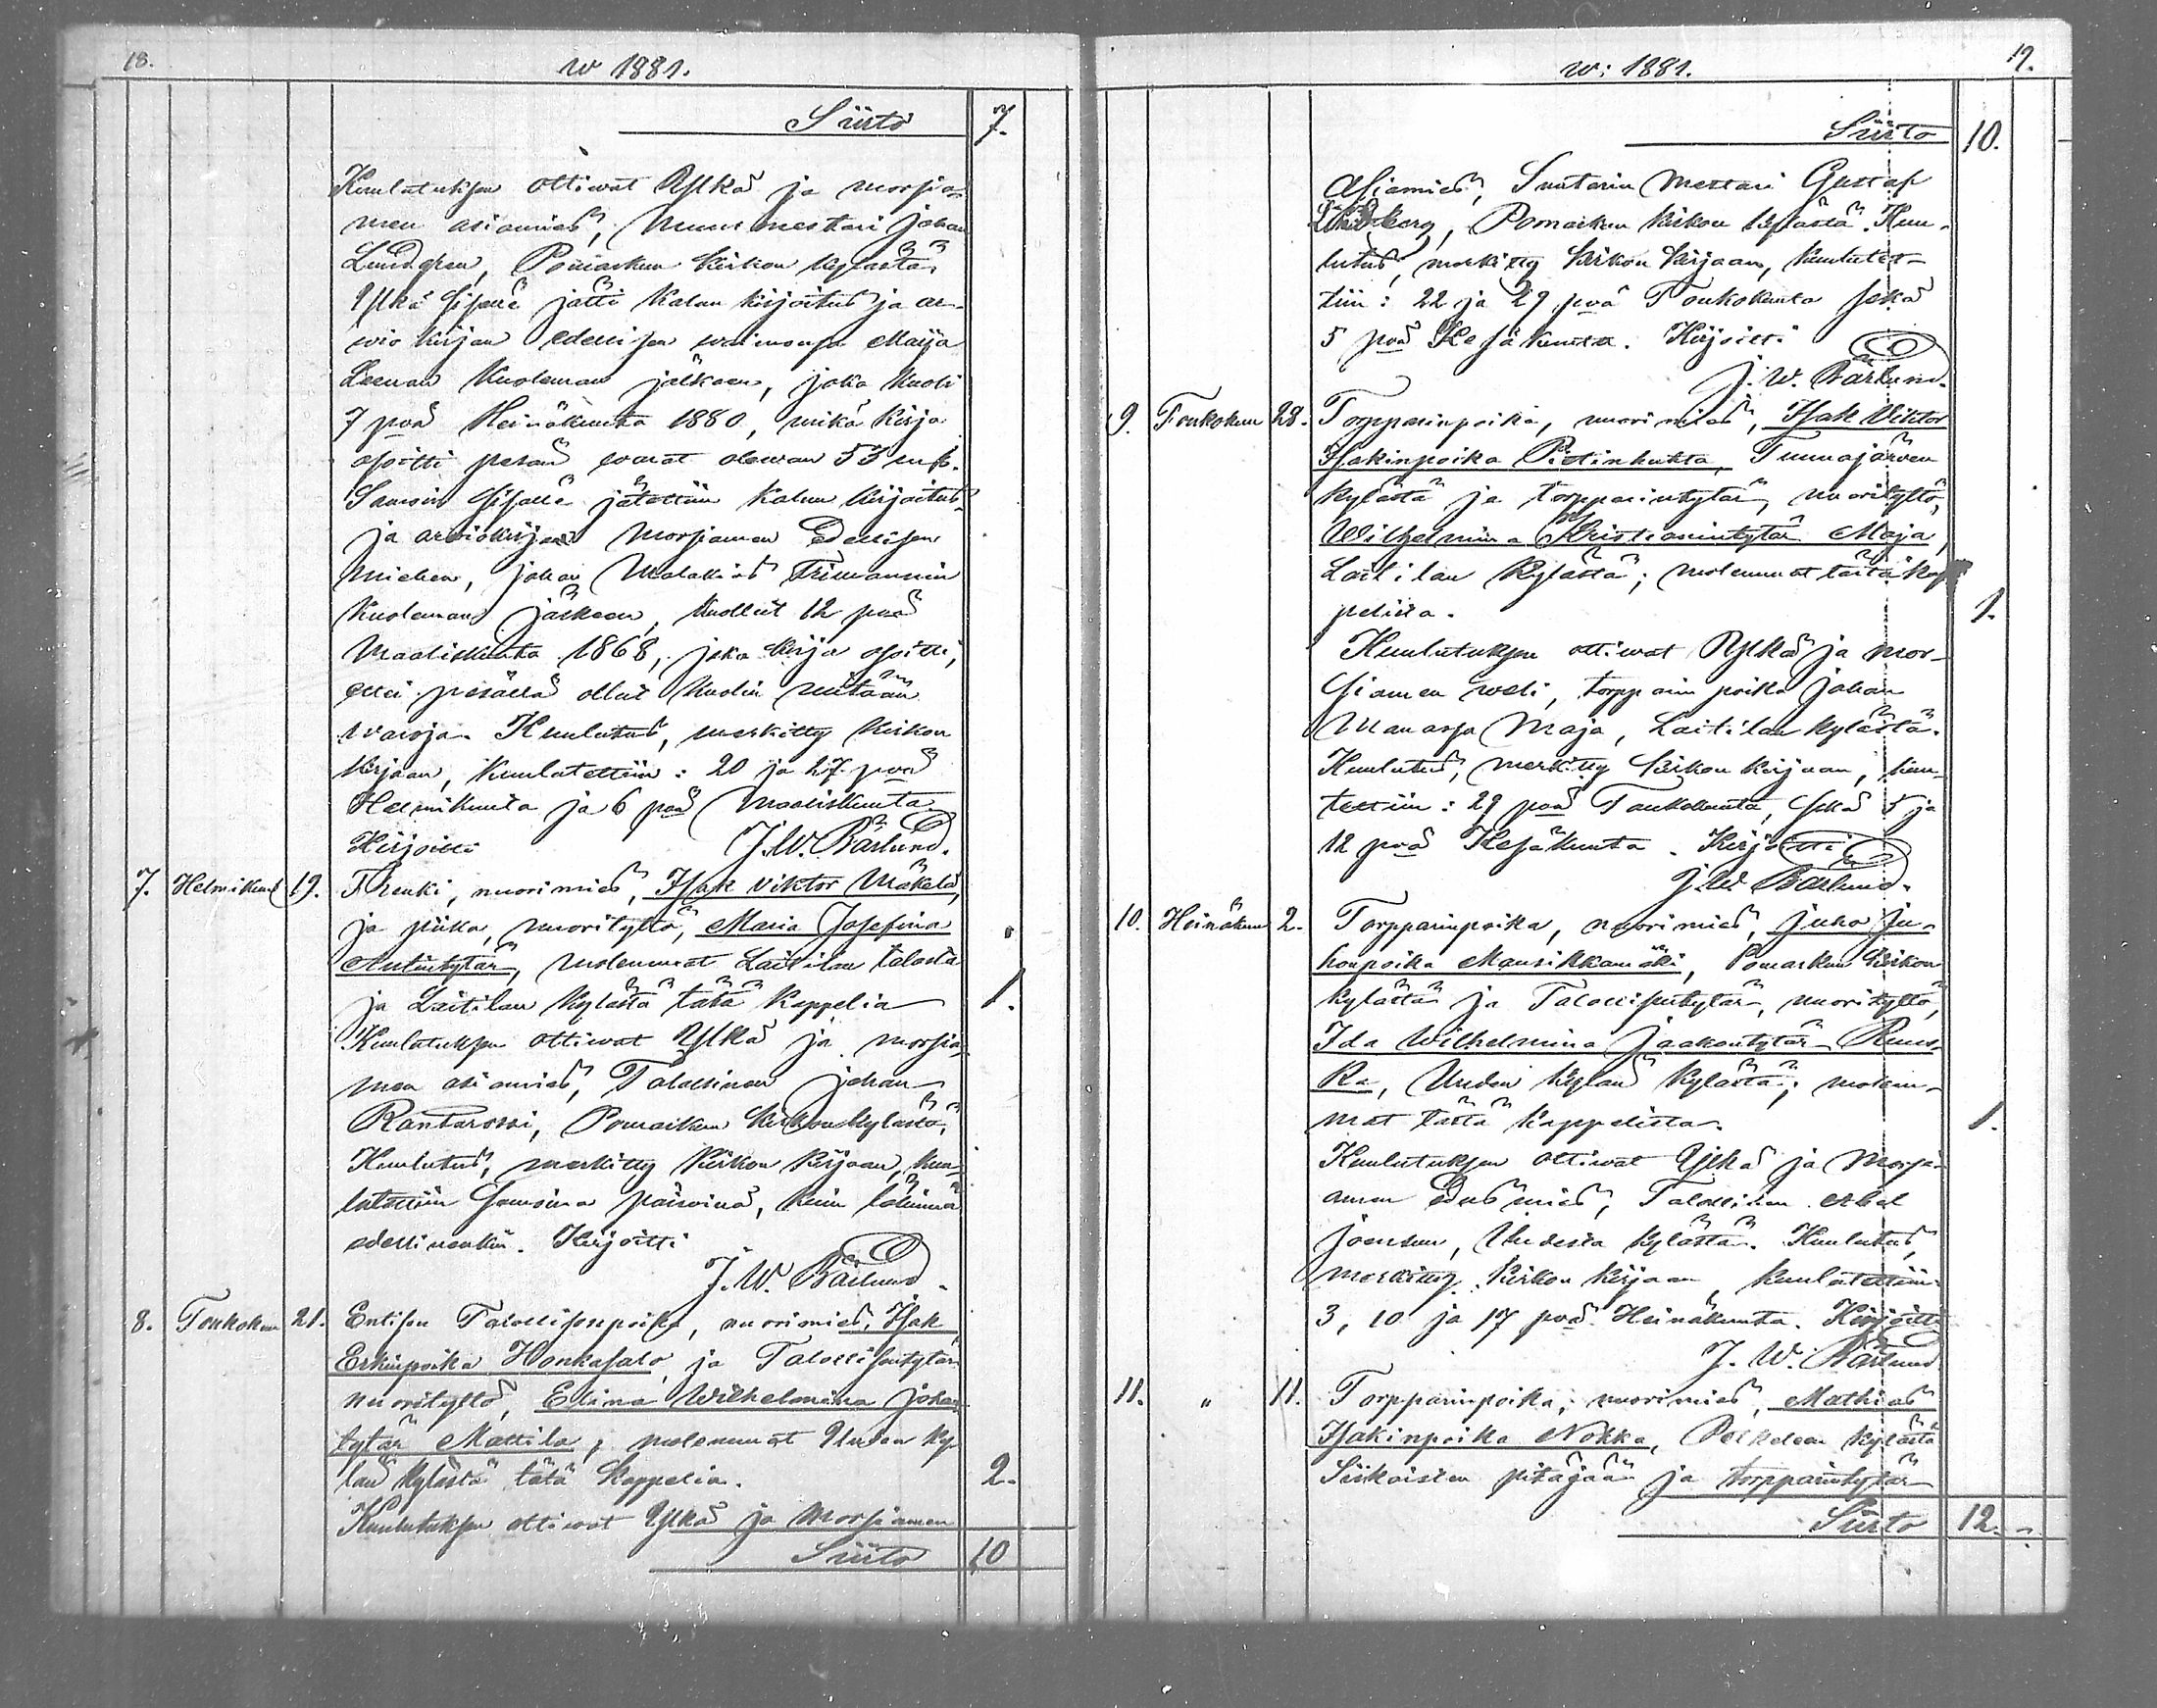 18.
w 1881.
Siirto 7.
Kuulutuksen ottiwat Ylkä ja morsia-
men asiamies, Muurmestari Johan
Lundgren, Pomarkun Kirkon kylästä.
Ylkä sisälle jätti Kalun kirjoitus ja ar-
wio kirjan edellisen waimonsa Maija
Leenan Kuoleman jälkeen, joka kuoli
7 pvä Heinäkuuta 1880, mikä Kirja
osoitti pesän warat olewan 53 mk.
Samoin sisälle jätettiin Kalun kirjoitus-
ja arwiokirjan Morsiamen Edellisen
miehen, Johan Malakias Frimannin
Kuoleman jälkeen, kuollut 12 pvä
Maaliskuuta 1868, joka kirja osoitti,
ettei pesällä ollut kuolin mitään
waroja. Kuulutus, merkitty Kirkon
kirjaan, Kuulutettiin: 20 ja 27 pvä
Helmikuuta ja 6 pvä Maaliskuuta
Kirjoitti J. W. Bärlund.
7. Helmikuu 19. Trenki, nuorimies, Isak Viktor Mäkelä,
ja piika, nuorityttö, Maria Josefina
Antintytär, molemmat Laitilan talosta
ja Laitilan kylästä tätä Kappelia 1.
Kuulutuksen ottiwat Ylkä ja morsia-
men asiamies, Talollinen Johan
Rantarossi, Pomarkun Kirkon kylästä,
Kuulutus, merkitty Kirkon Kirjaan, kuu-
lutettiin samoina päiwinä, kuin lähinnä
edellinenkin. Kirjoitti
J. W. Bärlund.
8. Toukokuu 21. Entisen Talollisenpoika, nuorimies, Isak
Erkinpoika Honkasalo, ja Talollisentytär
nuorityttö, Elina Wilhelmina Johan
tytär Mattila, molemmat Uuden ky-
län kylästä tätä Kappelia. 2.
Kuulutuksen ottiwat Ylkä ja Morsiamen
Siirto 10
w: 1881. 19.
Siirto 10.
Asiamies, Suutarin Mestari Gustaf
Pomarkun Kirkon kylästä. Kuu-
lutus, merkitty Kirkon kirjaan, kuulutet-
tiin: 22 ja 29 pvä Toukokuuta sekä
5 pvä Kesäkuuta. Kirjoitti
J. W. Bärlund.
9. Toukokuu 28. Torpparinpoika, nuorimies, Isak Viktor
Isakinpoika Pietinhuhta, Tuunajärwen
kylästä ja torpparintytär, nuorityttö,
Wilhelmina Kristianintytär Maja,
Laitilan Kylästä; molemmat tästä kap-
pelista. 1.
Kuulutuksen ottiwat Ylkä ja mor-
siamen weli, torpparin poika Johan
Manassa Maja, Laitilan kylästä.
Kuulutus, merkitty Kirkon kirjaan, kuu-
tettiin: 29 pvä Toukokuuta, sekä 5 ja
12 pvä Kesäkuuta. Kirjoitti
J. W. Bärlund.
10. Heinäkuu 2. Torpparinpoika, nuorimies, Juho Ju-
honpoika Mansikkamäki, Pomarkun Kirkon
kylästä ja Talollisentytär, nuorityttö,
Ida Wilhelmina Jaakontytär Ruus-
ka, Uuden kylän kylästä; molem-
mat tästä kappelista. 1.
Kuulutuksen ottiwat Ylkä ja Morsi-
amen Edusmies, Talollinen Abel
Joensuu, Uudesta kylästä. Kuulutus,
merkitty Kirkon kirjaan, kuulutettiin
3, 10 ja 17 pvä Heinäkuuta. Kirjoitti
J. W. Bärlund
11. " 11. Torpparinpoika, nuorimies, Mathias
Isakinpoika Nokka, kylästä
Siikaisten pitäjää ja torpparintytär
Siirto 12.